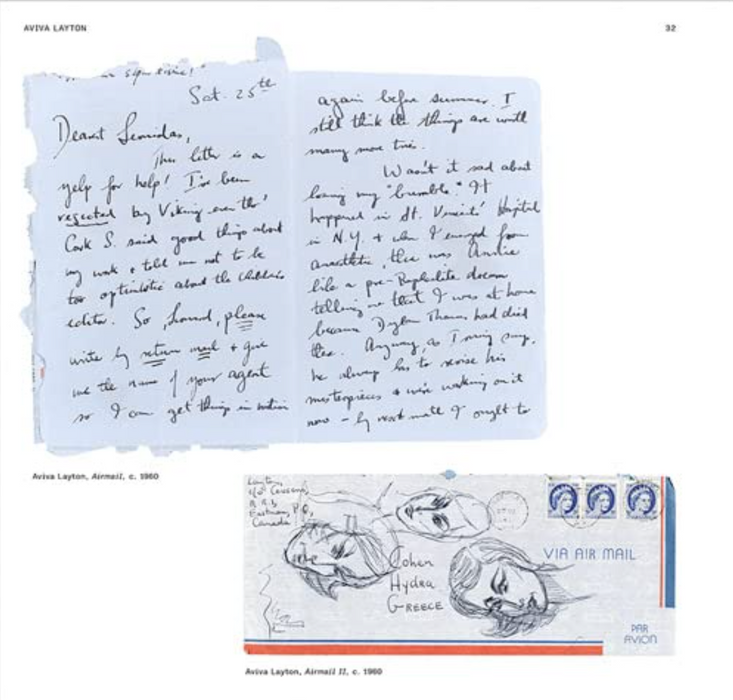 AVIVA LAYTON
32
Sept. 25th
Dearest Leonidas,
This letter is a
yelp for help! I've been
rejected by Viking even tho'
Cork S. said good things about
my work + told me not to be
too optimistic about the children's
editor. So, friend, please
write by return mail + give
me the name of your agent
so I can get things in motion
again before summer. I
still think the things are worth
many more tries.
Wasn't it sad about
losing my "bumble." It
happened in St. Vincents' Hospital
in N.Y. + when I emerged from
anaesthetic, there was Annie
like a pre-Raphelite dream
telling me that I was at home
because Dylan Thomas had died
there. Anyway, as Irving says,
he always has to revise his
masterpieces + we're working on it
now – by next mail I ought to
Aviva Layton, Airmail, c. 1960
Layton,
R.R.1,
Eastman, P.Q.,
Canada
Cohen
Hydra
GREECE
VIA AIR MAIL
PAR
AVION
Aviva Layton, Airmail II, c. 1960